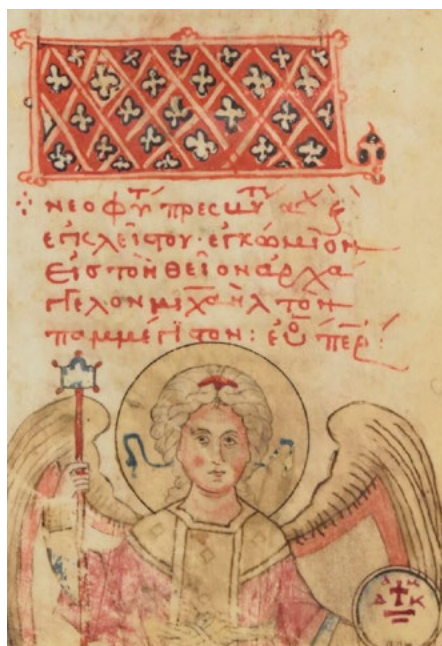 νεοφύ πρεσμυ αχ
εγκλείστου· εγκώμιον
Εἰς τὸν θεῖον ἀρχά
γγελον μιχαὴλ τὸν
παμμέγιστον: εὐ περ:
Δ Κ